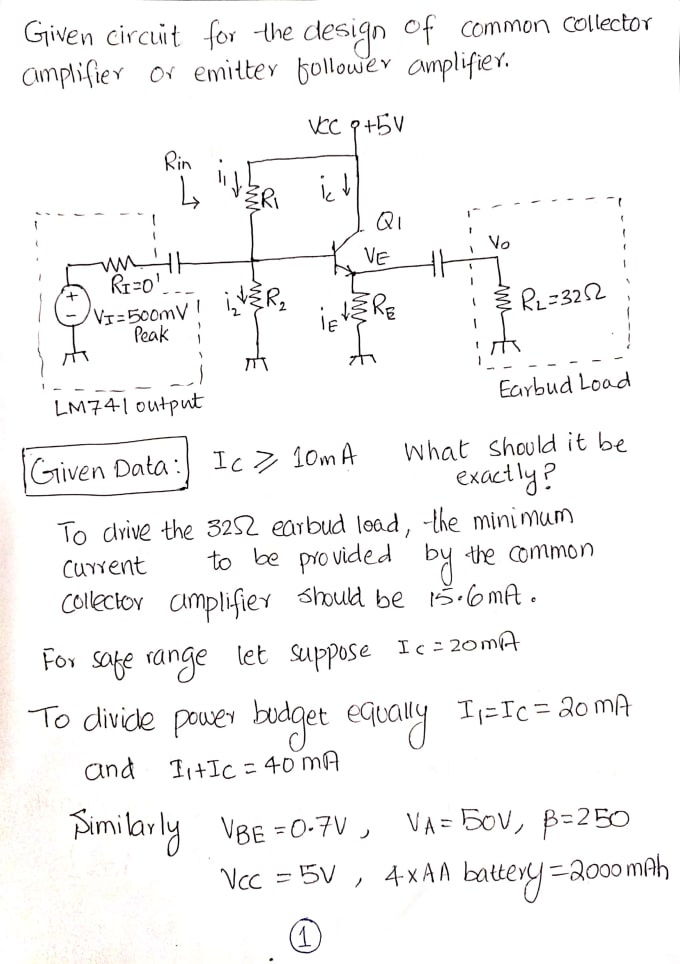 Given circuit for the design of common collector
amplifier or emitter follower amplifier.
VCC +5V
Rin
i1
R1
ic
Q1
VE
Vo
RI=0
VI=500mV
Peak
i2
R2
iE
RE
RL=32Ω
LM741 output
Earbud Load
Given Data: Ic ⩾ 10mA What should it be
exactly?
To drive the 32Ω earbud load, the minimum
current to be provided by the common
collector amplifier should be 15.6mA.
For safe range let suppose Ic=20mA
To divide power budget equally I1=Ic=20mA
and I1+Ic=40mA
Similarly VBE=0.7V, VA=50V, β=250
Vcc=5V, 4xAA battery=2000mAh
1